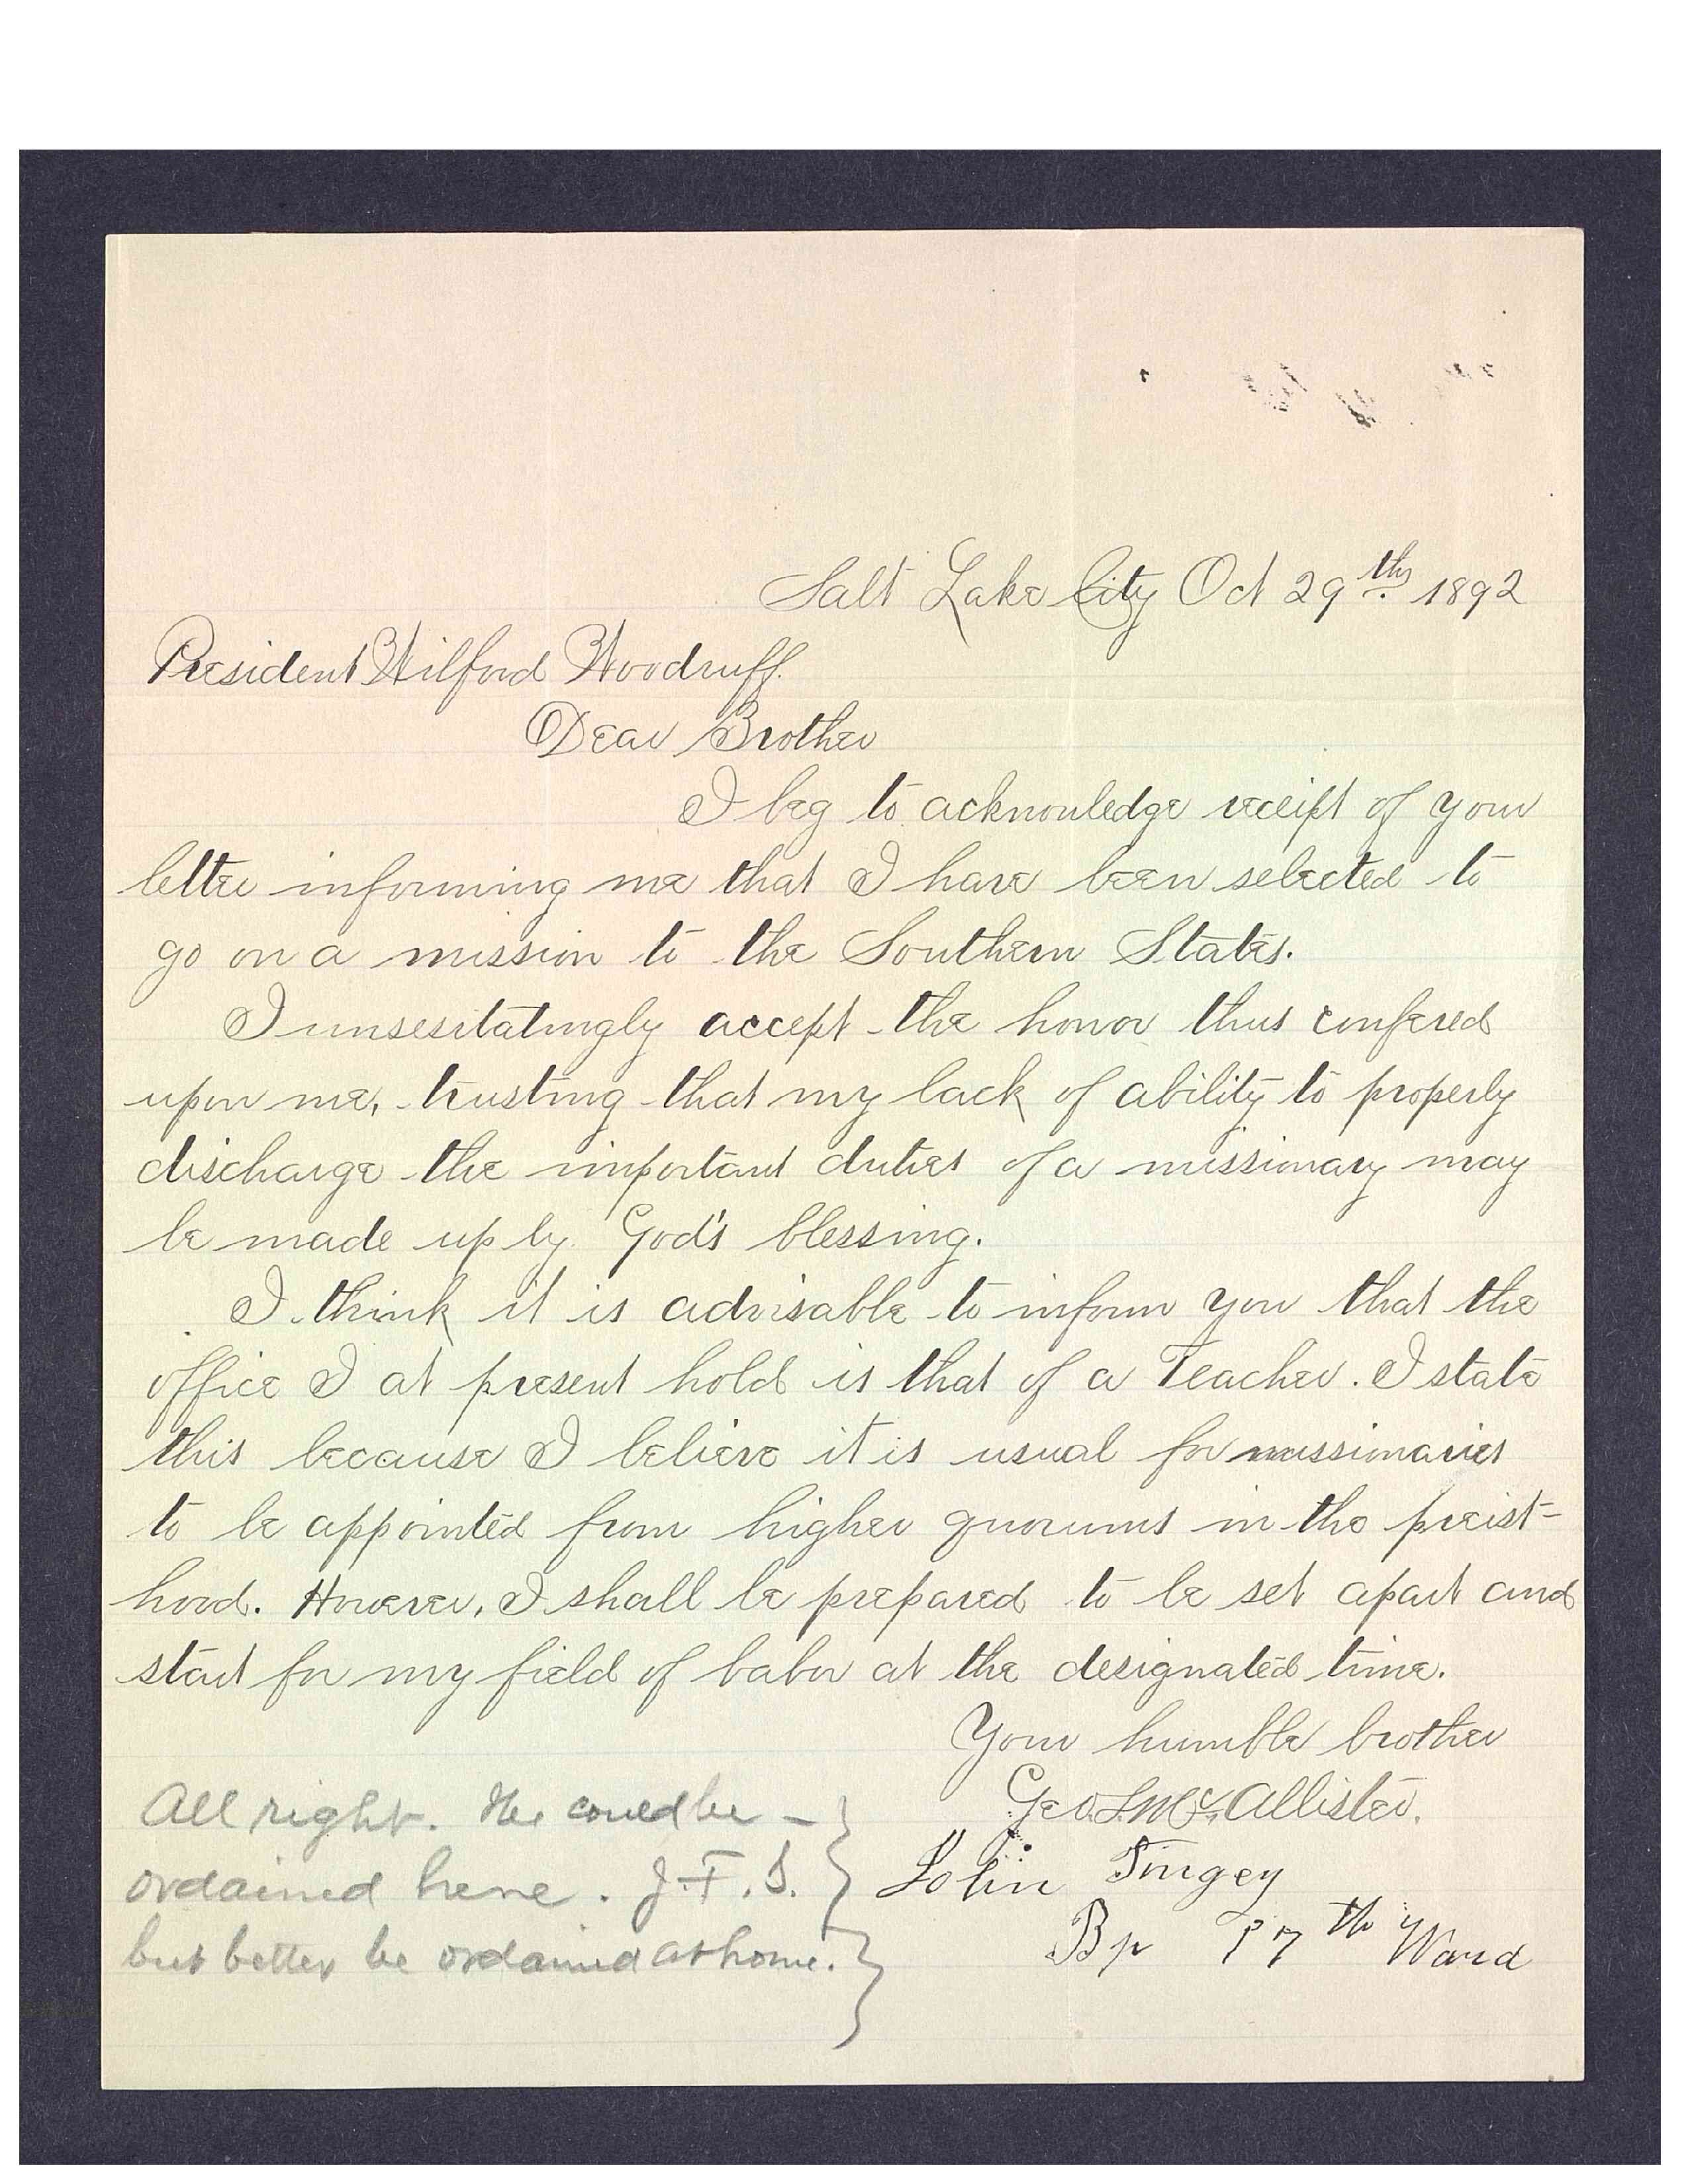 Salt Lake City Oct 29th 1892
President Wilford Woodruff.
Dear Brother
I beg to acknowledge receipt of your
letter informing me that I have been selected to
go on a mission to the Southern States.
I unsesitatingly accept the honor thus confered
upon me, trusting that my lack of ability to properly
discharge the important duties of a missionary may
be made up by God's blessing.
I think it is advisable to inform you that the
office I at present hold is that of a Teacher. I state
this because I believe it is usual for missionaries
to be appointed from higher quorums in the preist-
hood. However, I shall be prepared to be set apart and
start for my field of labor at the designated time.
Your humble brother
Geo. S. McAllister.
John Tingey
Bp 17th Ward
All right. He could be -
ordained here. J.F.S.
but better be ordained at home.